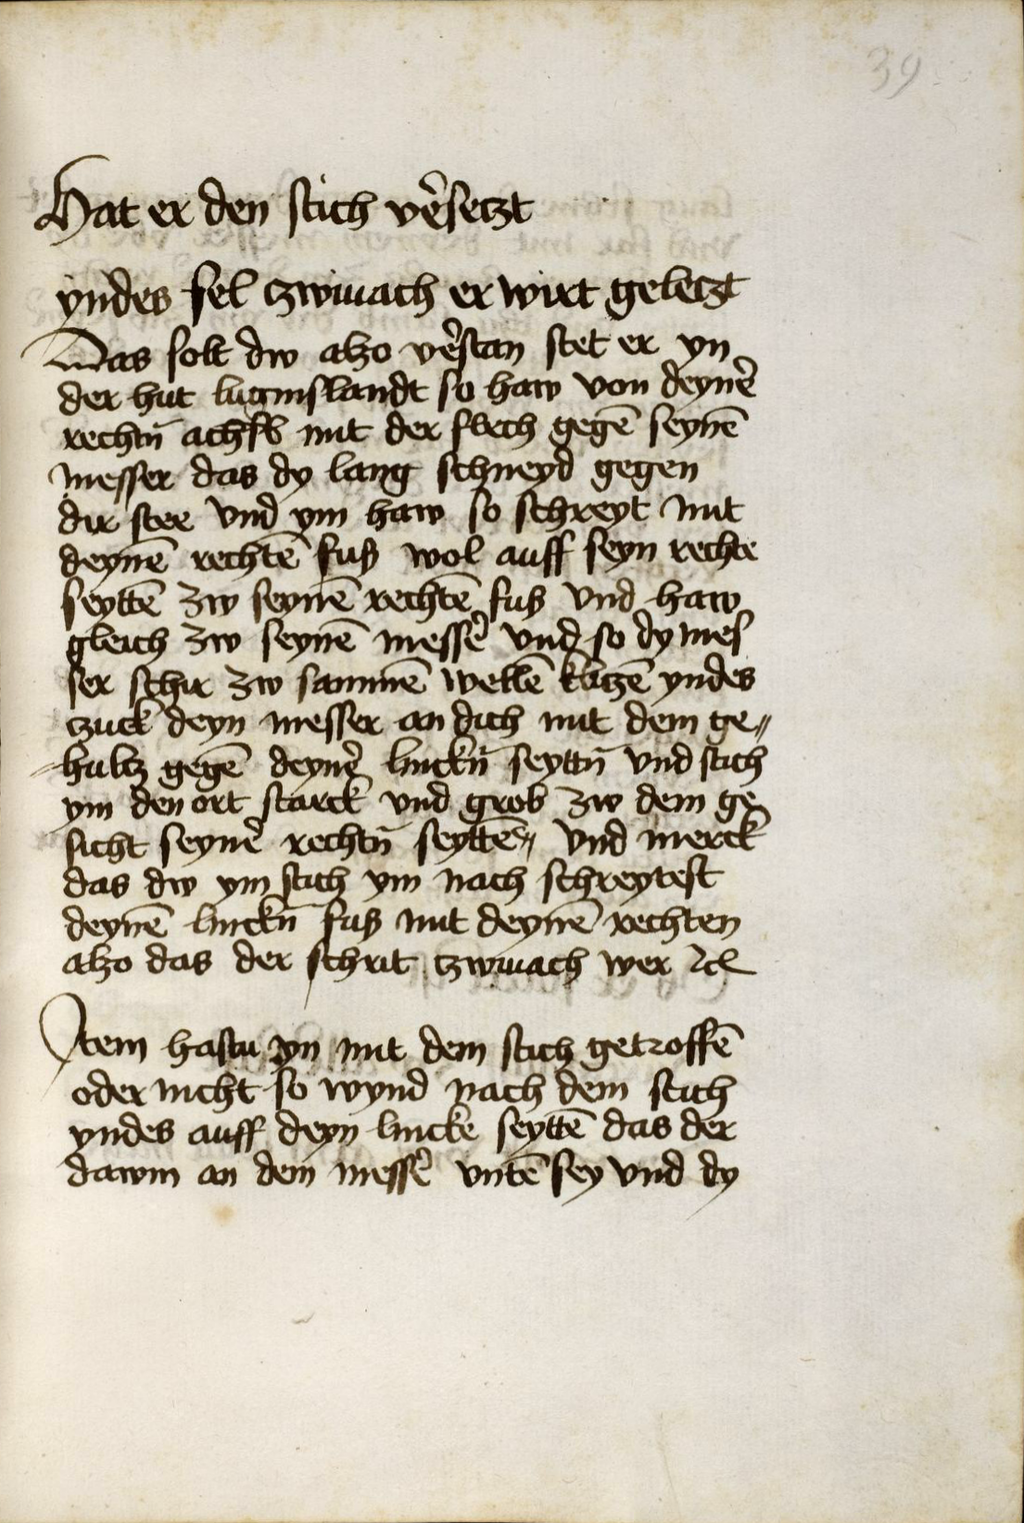 39
Hat er den stich vẽsetzt
yndes fel tzwiuach er wirt geletzt
Das solt dw alzo vẽstan stet er yn
der hut luginslandt so haw von deynẽ
rechtñ achsl mit der flech gegẽ seynẽ
messer das dy lang schneyd gegen
dir stee vnd ym haw so schreyt mit
deynẽ rechtẽ fuß wol auff seyn rechte
seyttẽ zw seynẽ rechtẽ fuß vnd haw
gleich zw seynẽ messẽ vnd so dy mes
ser schir zw sammẽ wellẽ klitzẽ yndes
tzuck deyn messer an dich mit dem ge〃
hultz gegẽ deynẽ linckñ seyttñ vnd stich
ym den ort starck vnd grob zw dem ge
sicht seynẽ rechtñ seyttẽ〃 vnd merck
das dw ym stich ym nach schreytest
deynẽ linckñ fuß mit deynẽ rechten
alzo das der schrit tzwiuach wer ꝛcꝉ
Item hastu yn mit dem stich getroffẽ
oder nicht so wynd nach dem stich
yndes auff deyn lincke seyttẽ das der
dawm an dem messẽ vntẽ sey vnd dy